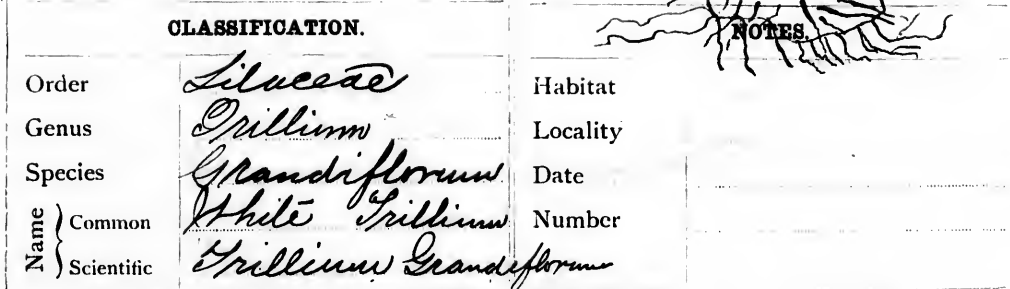 CLASSIFICATION.
Order Liliaceae
Genus Trillium
Species Grandiflorum
Name
Common White Trillium
Scientific Trillium Grandiflorum
NOTES.
Habitat
Locality
Date
Number